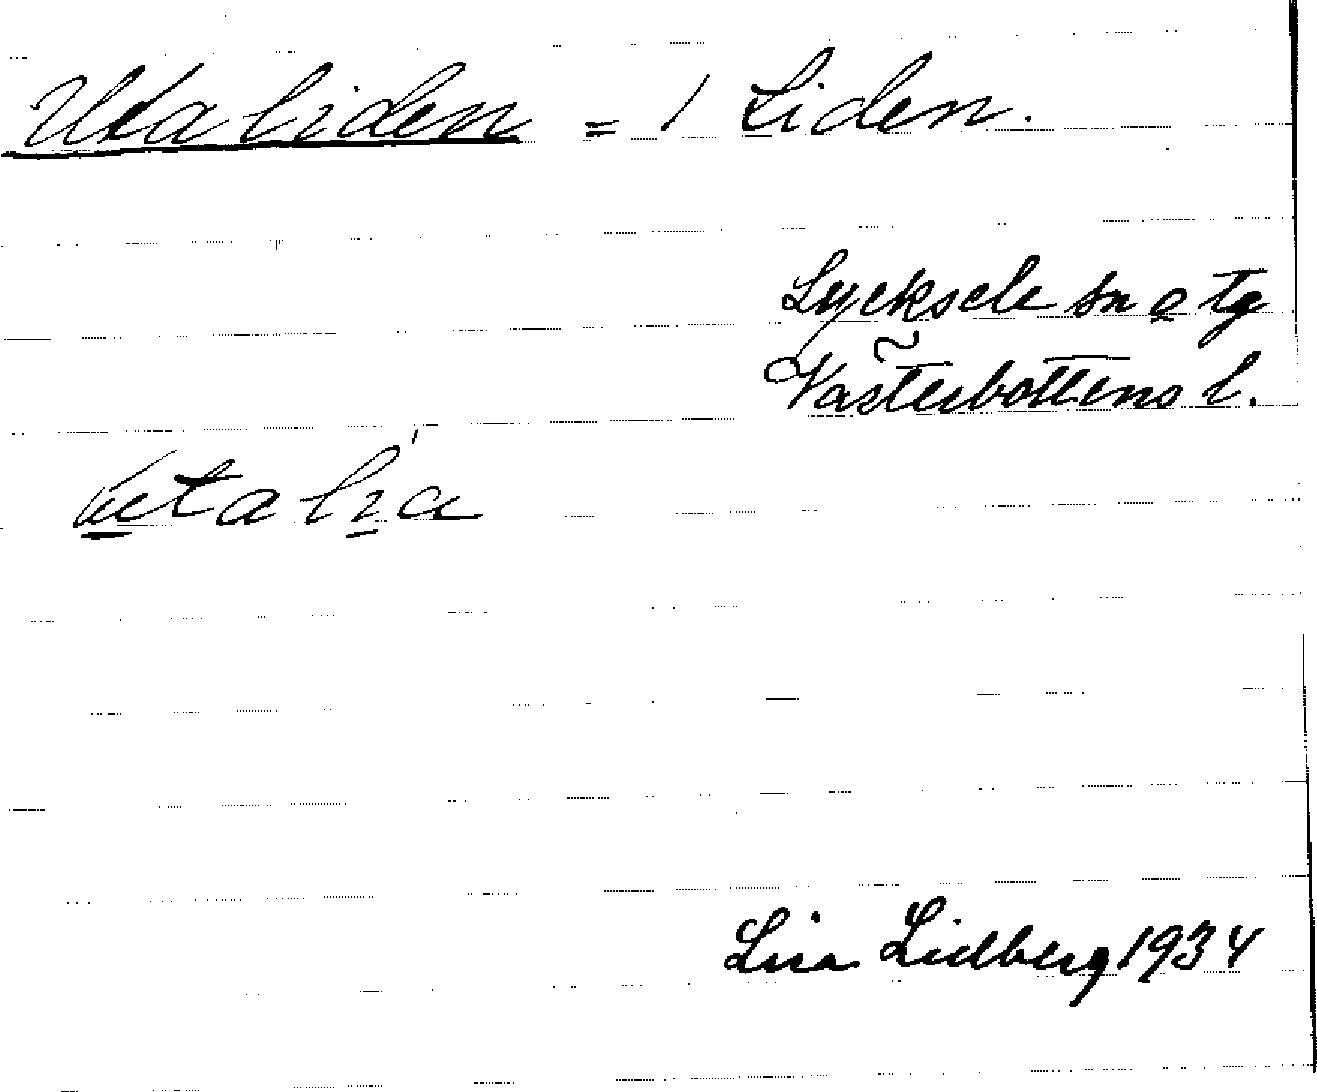 Uta liden = / Liden.
Lycksele sn o tg
Västerbottens l.
uta lia
Lisa Lidberg 1934